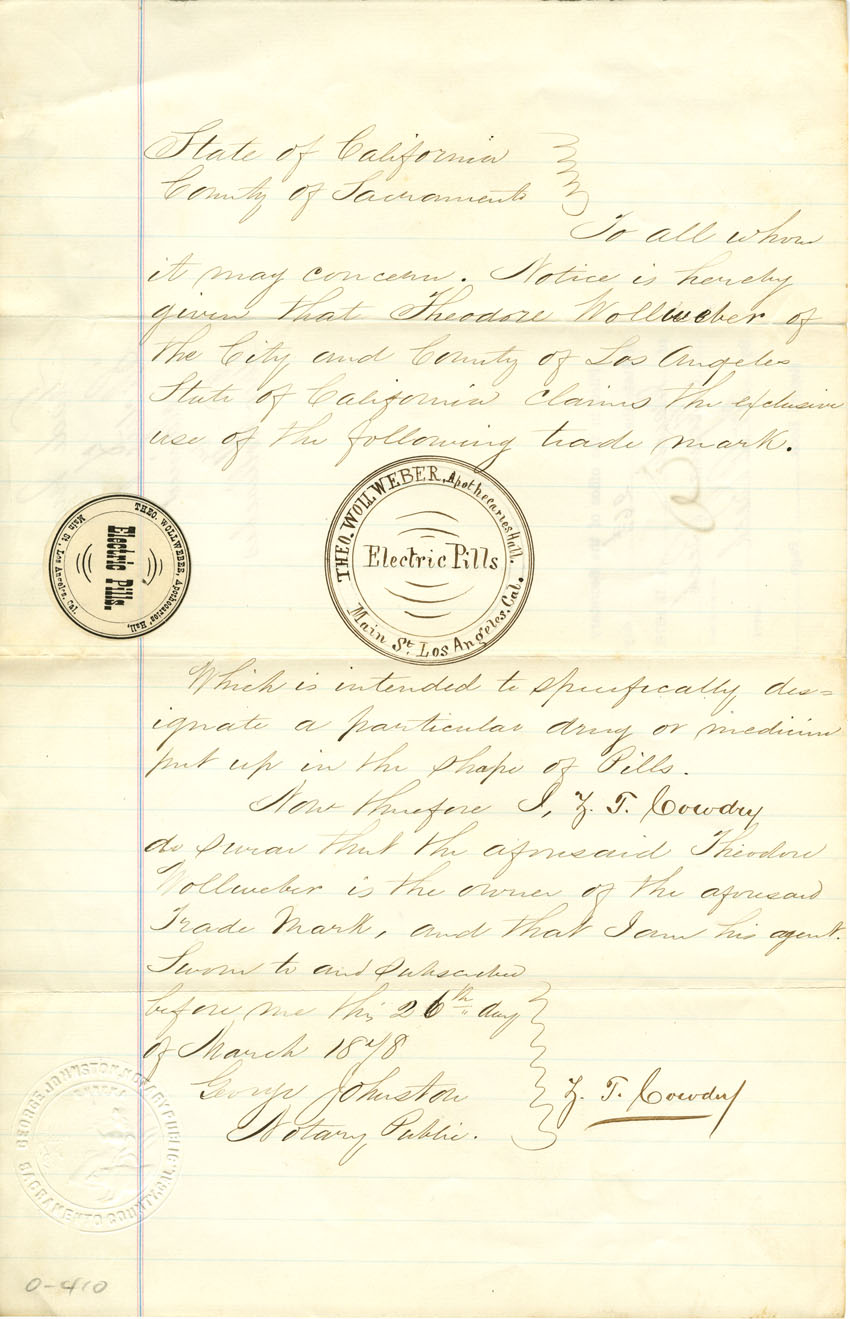 State of California
County of Sacramento
To all whom
it may concern. Notice is hereby
given that Theodore Wollweber of
the City and County of Los Angeles
State of California claims the exclusive
use of the following trade mark.
THEO. WOLLWEBER, Apothecaries Hall.
Electric Pills
Main St. Los Angeles. Cal.
THEO. WOLLWEBER, Apothecaries' Hall,
Electric Pills.
Main St., Los Angeles, Cal.
Which is intended to specifically des=
ignate a particular drug or medicine
put up in the shape of Pills.
Now therefore I, Z. T. Cowdry
do swear that the aforesaid Theodore
Wollweber is the owner of the aforesaid
Trade Mark, and that I am his agent.
Sworn to and subscribed
before me this 26th day
of March 1878
George Johnston
Z. T. Cowdry
Notary Public.
GEORGE JOHNSTON, NOTARY PUBLIC
SACRAMENTO COUNTY, CAL.
0-410